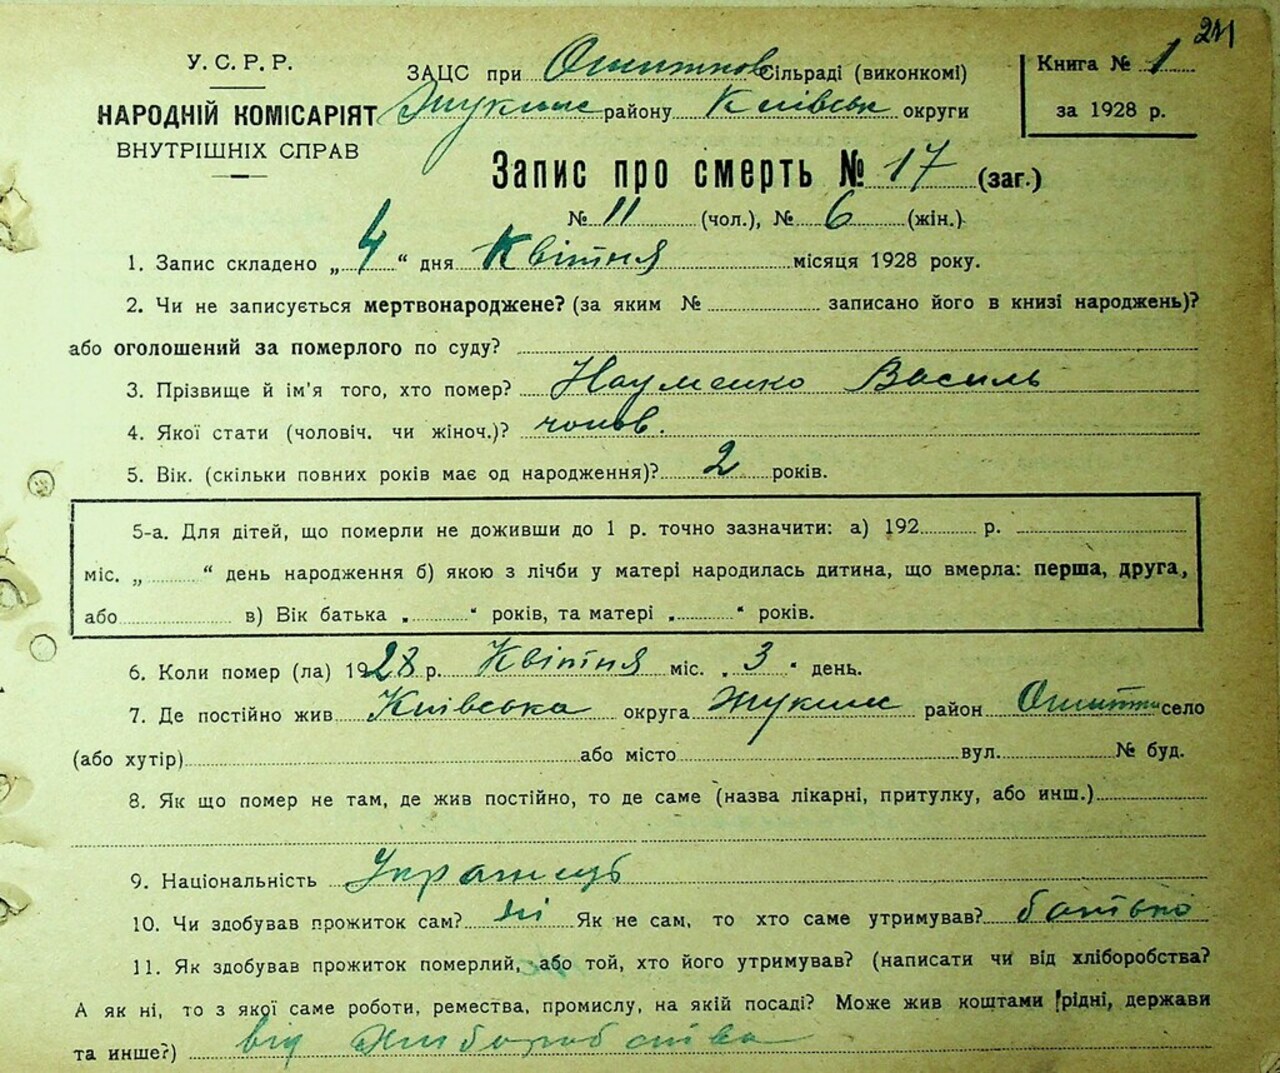 241
У. С. Р. Р.
НАРОДНІЙ КОМІСАРІЯТ
ВНУТРІШНІХ СПРАВ
ЗАЦС при Сільраді (виконкомі)
Жукинс району Київськ округи
Книга № 1
за 1928 р.
Запис про смерть № 17 (заг.)
№ 11 (чол.), № 6 (жін.)
1. Запис складено „ 4 “ дня Квітня місяця 1928 року.
2. Чи не записується мертвонароджене? (за яким № записано його в книзі народжень)?
або оголошений за померлого по суду?
3. Прізвище й ім'я того, хто помер? Науменко Василь
4. Якої стати (чоловіч. чи жіноч.)? чолов.
5. Вік. (скільки повних років має од народження)? 2 років.
5-а. Для дітей, що померли не доживши до 1 р. точно зазначити: а) 192 р.
міс. „ “ день народження б) якою з лічби у матері народилась дитина, що вмерла: перша, друга,
або в) Вік батька „ “ років, та матері „ “ років.
6. Коли помер (ла) 1928 р. Квітня міс. „ 3 “ день.
7. Де постійно жив Київська округа Жукинс район село
(або хутір) або місто вул. № буд.
8. Як що помер не там, де жив постійно, то де саме (назва лікарні, притулку, або инш.)
9. Національність Українець
10. Чи здобував прожиток сам? ні Як не сам, то хто саме утримував? батько
11. Як здобував прожиток померлий, або той, хто його утримував? (написати чи від хліборобства?
А як ні, то з якої саме роботи, ремества, промислу, на якій посаді? Може жив коштами рідні, держави
та инше?) від Хліборобства